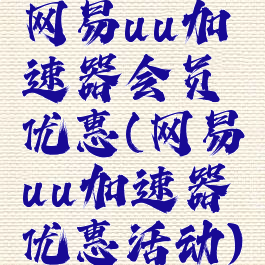 网易uu加
速器会员
优惠(网易
uu加速器
优惠活动)